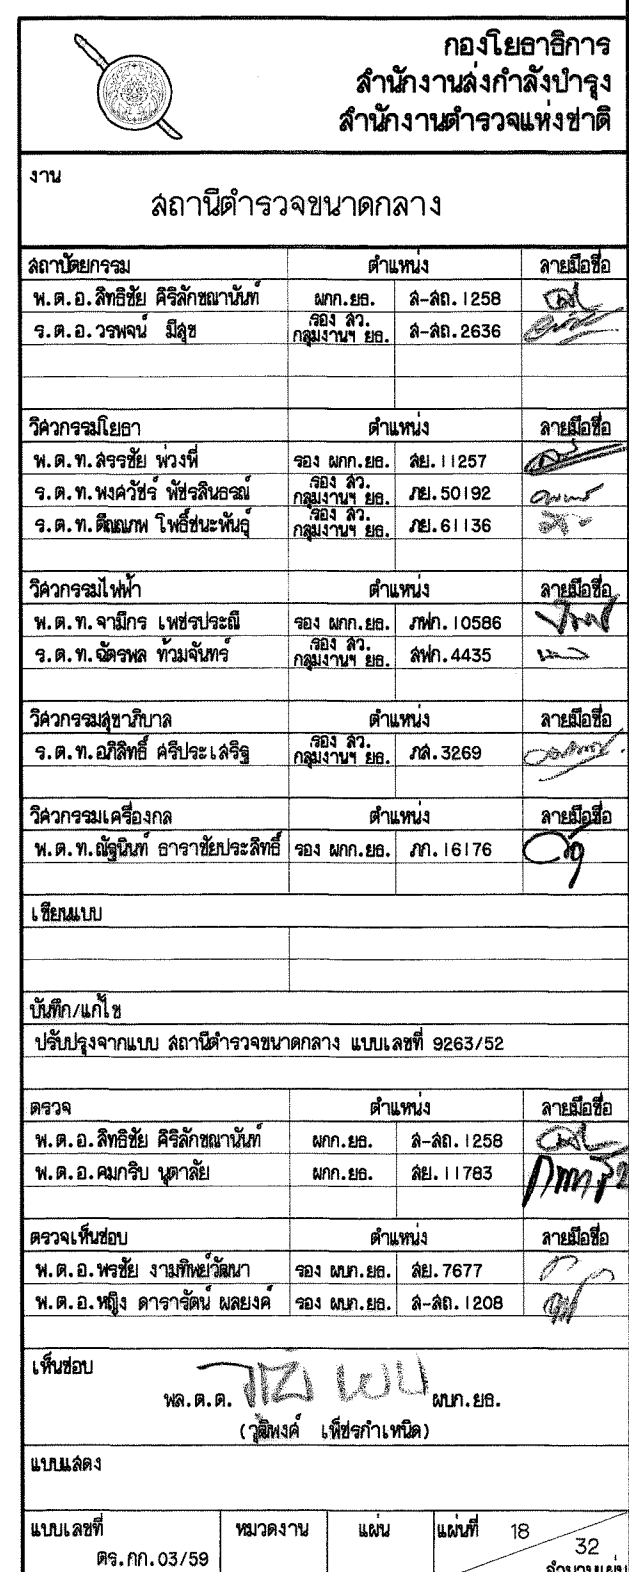 กองโยธาธิการ
สำนักงานส่งกำลังบำรุง
สำนักงานตำรวจแห่งชาติ
งาน
สถานีตำรวจขนาดกลาง
สถาปัตยกรรม ตำแหน่ง ลายมือชื่อ
พ.ต.อ.สิทธิชัย ศิริลักขณานันท์ ผกก.ยธ. ส-สถ.1258
ร.ต.อ.วรพจน์ มีสุข รอง สว. กลุ่มงานฯ ยธ. ส-สถ.2636
วิศวกรรมโยธา ตำแหน่ง ลายมือชื่อ
พ.ต.ท.สรรชัย พ่วงพี่ รอง ผกก.ยธ. สย.11257
ร.ต.ท.พงศวัชร์ พัชรสินธรณ์ รอง สว. กลุ่มงานฯ ยธ. ภย.50192
ร.ต.ท.ติณณภพ โพธิ์ชนะพันธุ์ รอง สว. กลุ่มงานฯ ยธ. ภย.61136
วิศวกรรมไฟฟ้า ตำแหน่ง ลายมือชื่อ
พ.ต.ท.จามีกร เพชรประณี รอง ผกก.ยธ. ภฟก.10586
ร.ต.ท.ฉัตรพล ท้วมจันทร์ รอง สว. กลุ่มงานฯ ยธ. สฟก.4435
วิศวกรรมสุขาภิบาล ตำแหน่ง ลายมือชื่อ
ร.ต.ท.อภิสิทธิ์ ศรีประเสริฐ รอง สว. กลุ่มงานฯ ยธ. ภส.3269
วิศวกรรมเครื่องกล ตำแหน่ง ลายมือชื่อ
พ.ต.ท.ณัฐนินท์ ธาราชัยประสิทธิ์ รอง ผกก.ยธ. ภก.16176
เขียนแบบ
บันทึก/แก้ไข
ปรับปรุงจากแบบ สถานีตำรวจขนาดกลาง แบบเลขที่ 9263/52
ตรวจ ตำแหน่ง ลายมือชื่อ
พ.ต.อ.สิทธิชัย ศิริลักขณานันท์ ผกก.ยธ. ส-สถ.1258
พ.ต.อ.คมกริบ นุตาลัย ผกก.ยธ. สย.11783
ตรวจเห็นชอบ ตำแหน่ง ลายมือชื่อ
พ.ต.อ.พรชัย งามทิพย์วัฒนา รอง ผบก.ยธ. สย.7677
พ.ต.อ.หญิง ดารารัตน์ ผลยงค์ รอง ผบก.ยธ. ส-สถ.1208
เห็นชอบ
พล.ต.ต. ผบก.ยธ.
(วุฒิพงศ์ เพ็ชรกำเหนิด)
แบบแสดง
แบบเลขที่ หมวดงาน แผ่น แผ่นที่ 18
ตร.กก.03/59 32
จำนวนแผ่น